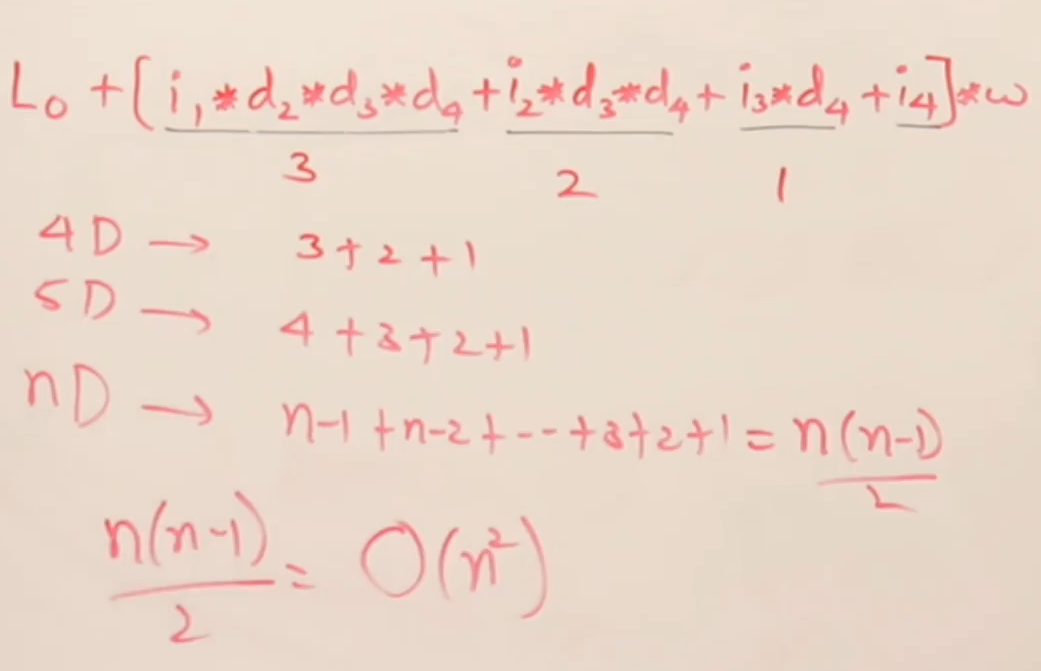 L₀ + [i₁*d₂*d₃*d₄ + i₂*d₃*d₄ + i₃*d₄ + i₄]*w
3 2 1
4D → 3+2+1
5D → 4+3+2+1
nD → n-1+n-2+---+3+2+1 = n(n-1)/2
n(n-1)/2 = O(n²)